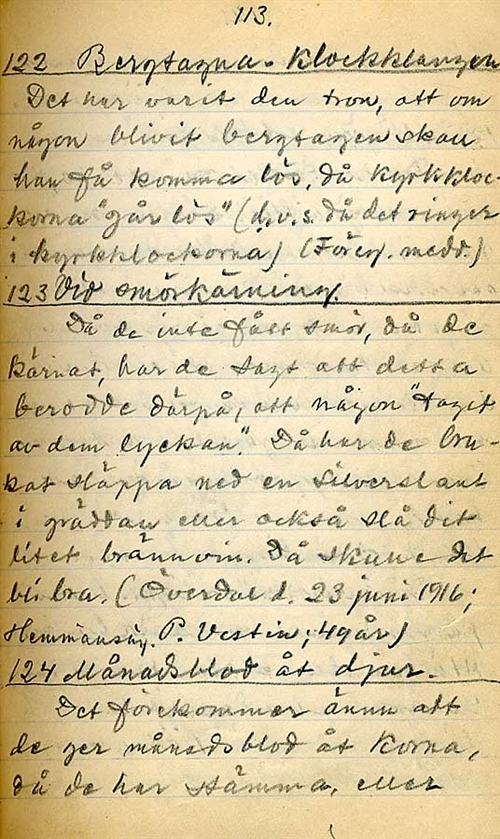 113.
122 Bergtagna - Klockklangen
Det har varit den tron, att om
någon blivit bergtagen skall
han få komma lös, då kyrkkloc-
korna "går lös" (d.v.s. då det ringer
i kyrkklockorna) (Föreg. medd.)
123 Vid smörkärning.
Då de inte fått smör, då de
kärnat, har de sagt att detta
berodde därpå, att någon "tagit
av dem lyckan". Då har de bru-
kat släppa ned en silverslant
i grädden eller också slå dit
litet brännvin. Då skulle det
bli bra. (Överdal d. 23 juni 1916;
Hemmansäg. P. Vestin; 49 år)
124 Månadsblod åt djur.
Det förekommer ännu att
de ger månadsblod åt korna,
då de har stämma, eller